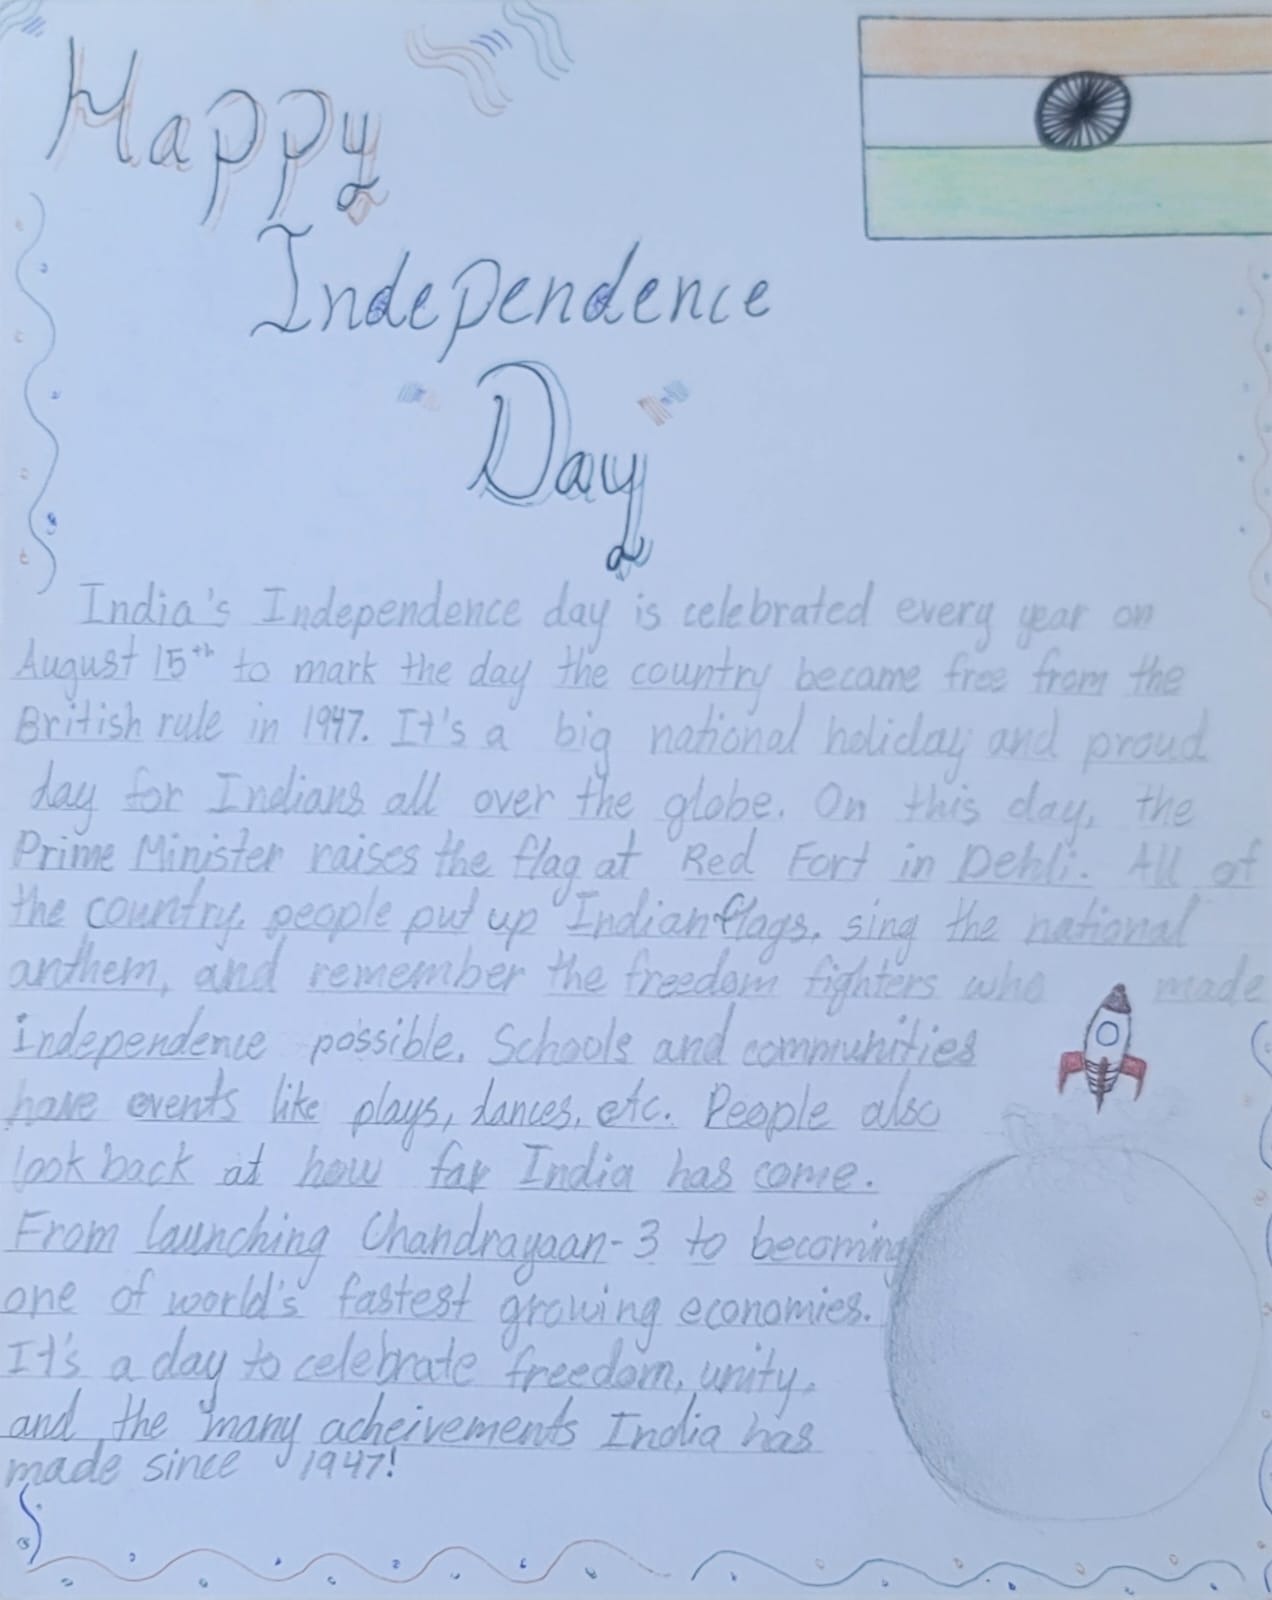 Happy
Independence
Day
India's Independence day is celebrated every year on
August 15th to mark the day the country became free from the
British rule in 1947. It's a big national holiday and proud
day for Indians all over the globe. On this day, the
Prime Minister raises the flag at Red Fort in Dehli. All of
the country, people put up Indian flags, sing the national
anthem, and remember the freedom fighters who made
independence possible. Schools and communities
have events like plays, dances, etc. People also
look back at how far India has come.
From launching Chandrayaan-3 to becoming
one of world's fastest growing economies.
It's a day to celebrate freedom, unity,
and the many acheivements India has
made since 1947!